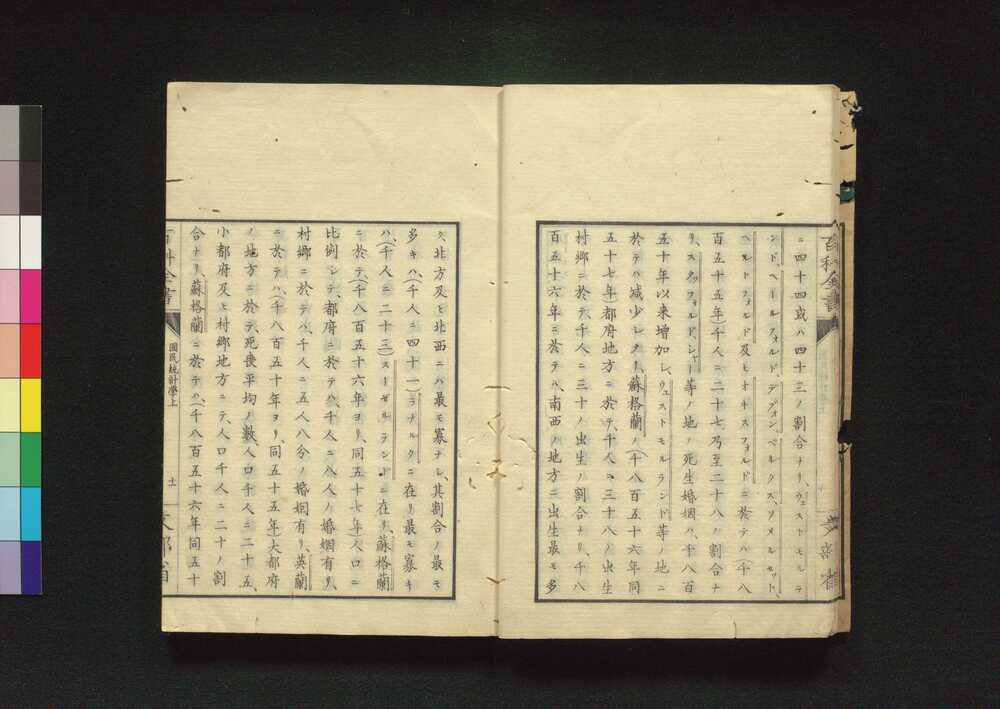 百科全書
文部省
ニ四十四或ハ四十三ノ割合ナリ、ウェストモルラ
ンド、ヘールフォルド、デヴォン、ベルクス、ソメルセット、
ヘルトフォルド及ヒオキスフォルドニ於テハ(千八
百五十五年)千人ニ二十七乃至二十八ノ割合ナ
リ、スタッフォルドシャー等ノ地ノ死生婚姻ハ、千八百
五十年以来増加シ、ウェストモルランド等ノ地ニ
於テハ減少シタリ、蘇格蘭ノ(千八百五十六年同
五十七年)都府地方ニ於テ、千人ニ三十八ノ出生
村郷ニ於テ、千人ニ三十ノ出生ノ割合ナリ、千八
百五十六年ニ於テハ、南西ノ地方ニ出生最モ多
ク、北方及ヒ北西ニハ最モ寡ナシ、其割合ノ最モ
多キハ、(千人ニ四十一)ラナルクニ在リ最モ寡キ
ハ、(千人ニ二十三)スーゼルランドニ在リ、蘇格蘭
ニ於テ、(千八百五十六年ヨリ、同五十七年)人口ニ
比例シテ、都府ニ於テハ、千人ニ八人ノ婚姻有リ、
村郷ニ於テハ、千人ニ五人八分ノ婚姻有リ、英蘭
ニ於テハ、(千八百五十年ヨリ、同五十五年)大都府
ノ地方ニ於テ、死喪平均ノ數、人口千人ニ二十五、
小都府及ヒ村郷地方ニテ、人口千人ニ二十ノ割
合ナリ、蘇格蘭ニ於テハ、(千八百五十六年同五十
百科全書
國民統計學上
十一
文部省